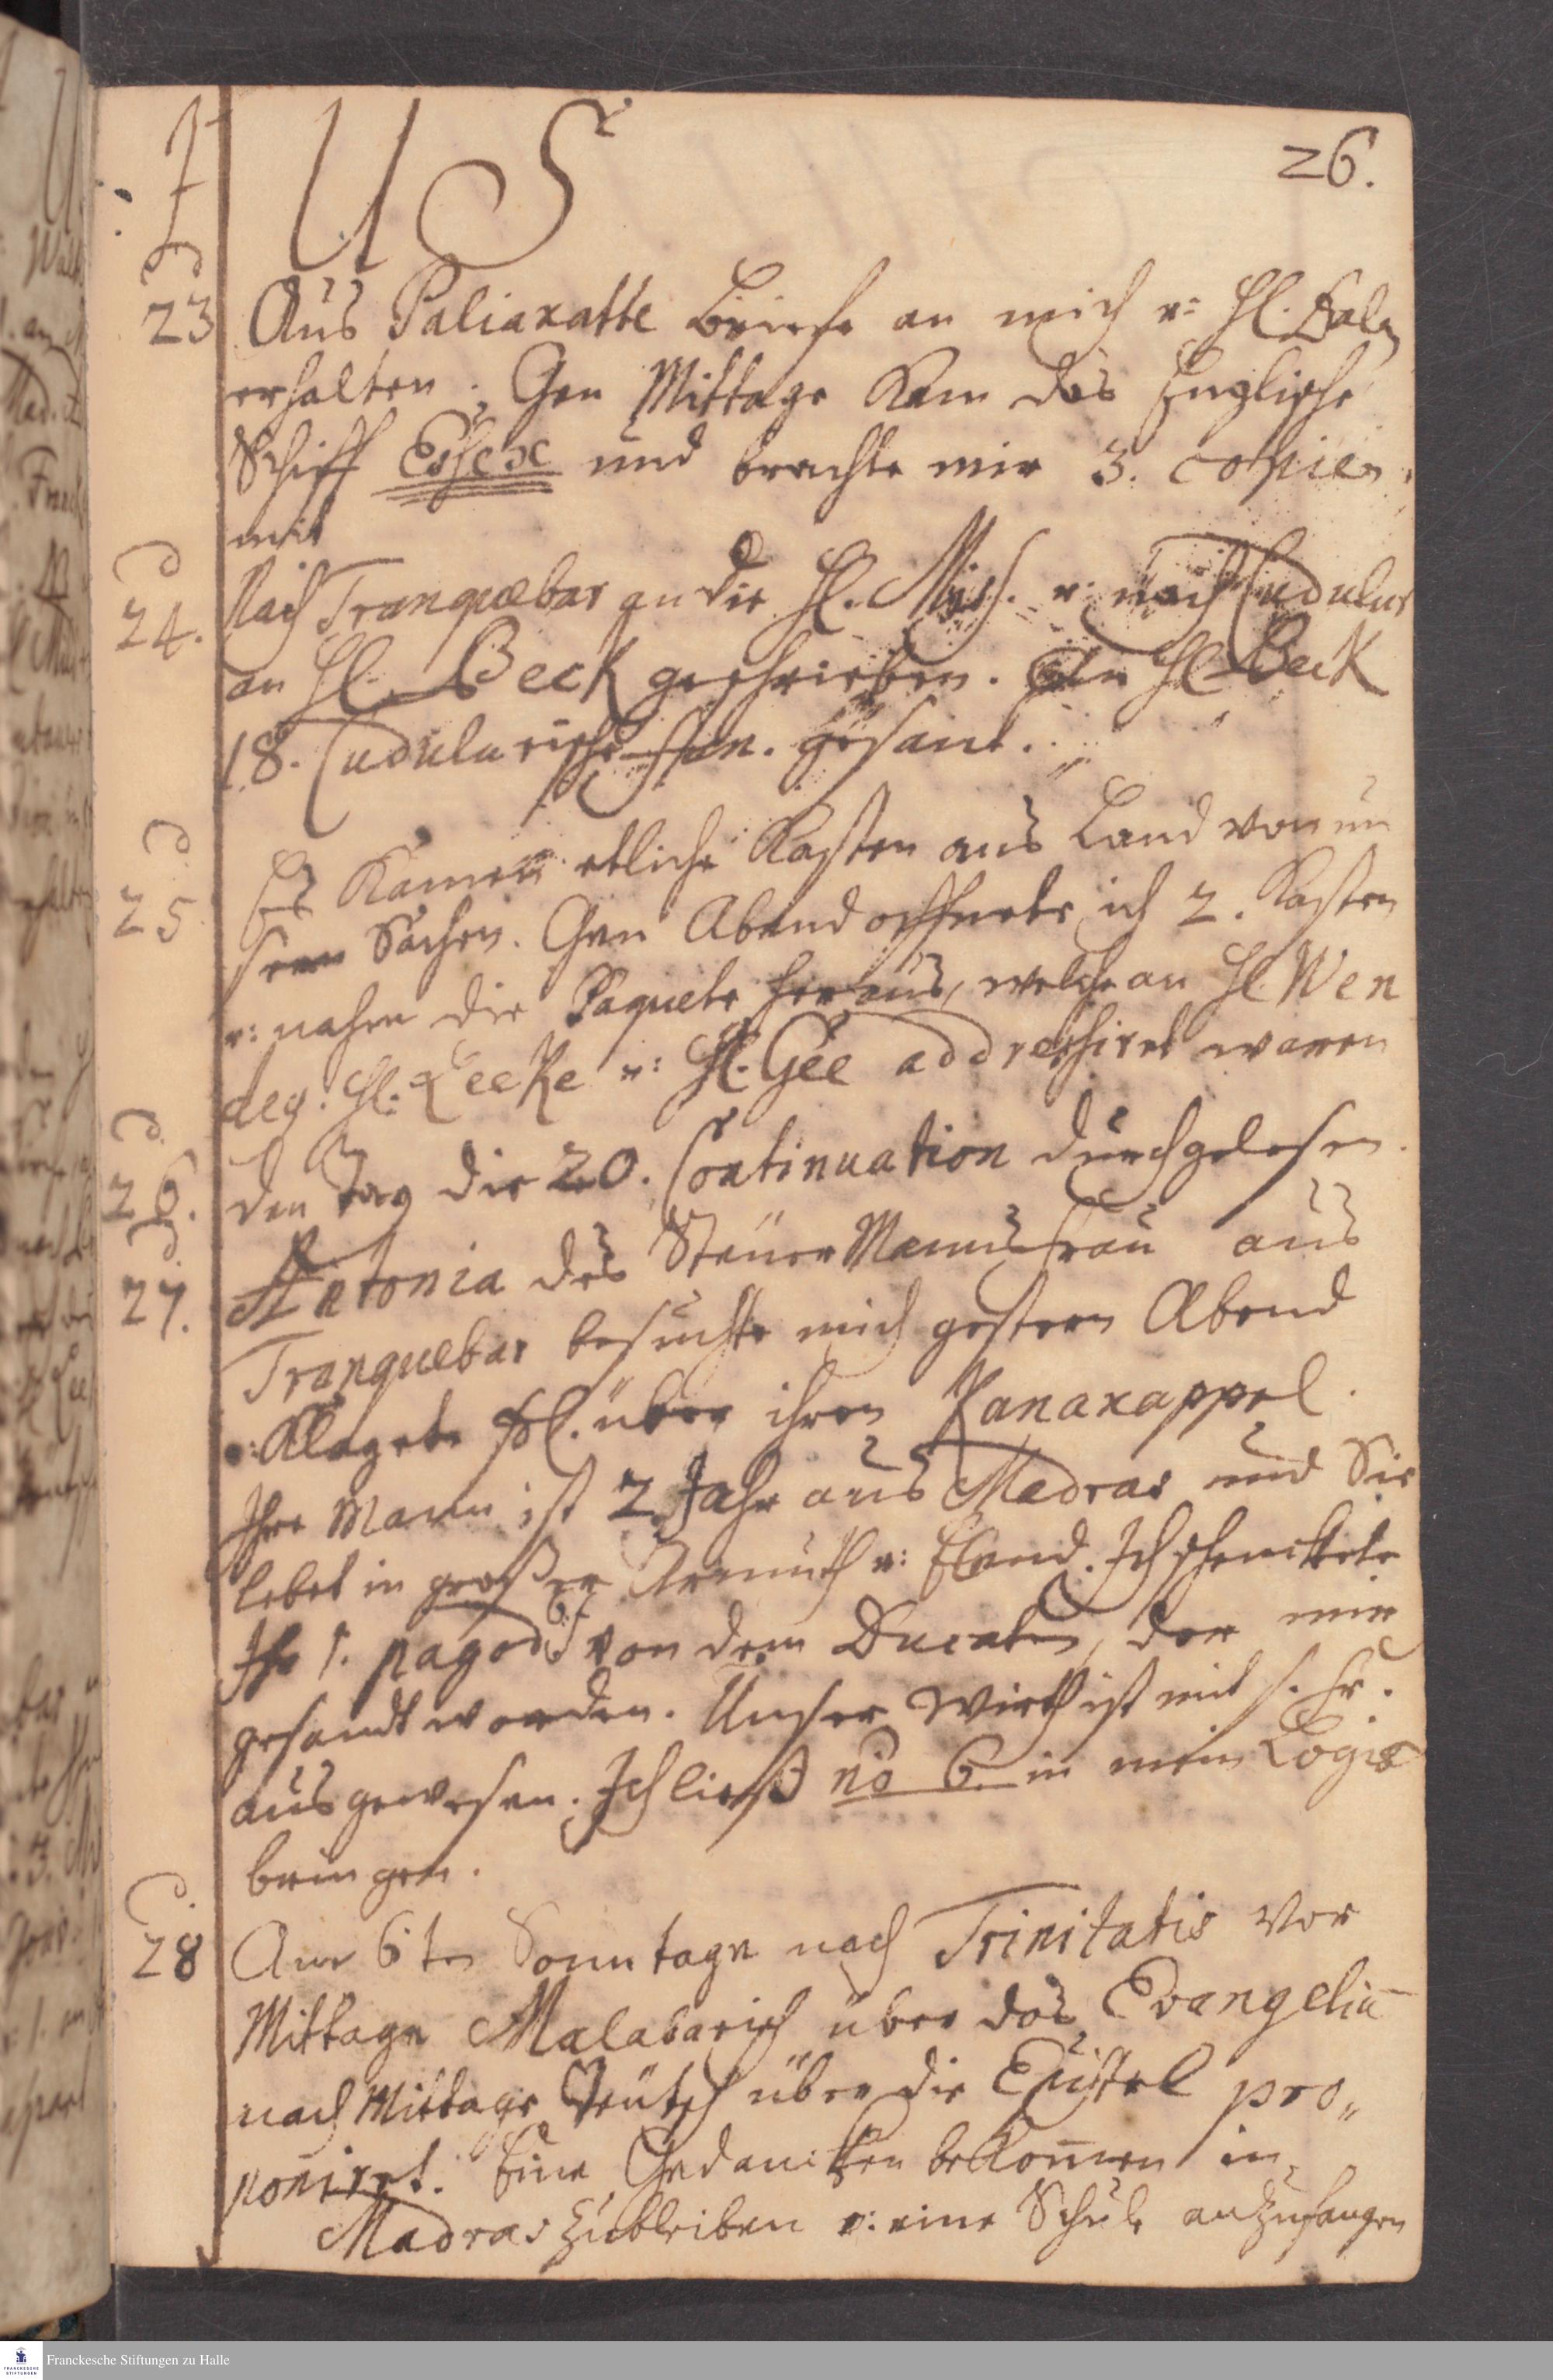 US
26.
23 Aus Paliacatte Briefe an mich u: H. Sale
erhalten. Gen Mittage kam das Englische
Schiff Essex und brachte mir 3. copien
mit
24. Nach Tranquebar an die H. Miss. u: nach Cudulur
an H. Beck geschrieben. An H. Beck
18. Cudulurische fan. gesant.
25 Es kamen etliche Kasten ans Land von un
sern Sachen. Gen Abend offnete ich 2. Kasten
u: nahm die Paquete heraus, welche an H. Wen
dey. H. Leeke u: H. Gee addressiret waren
26. den Tag die 20. Continuation durchgelesen.
27. Antonia des Steuer Manns Frau aus
Tranquebar besuchte mich gestern Abend
u: klagete über ihren Kanakappel.
Ihr Mann ist 2 Jahr aus Madras und Sie
lebet in großer Armuth u: Elend. Ich schenckete
Ihr 1. pagod von dem Ducaten, der mir
gesandt worden. Unser Wirth ist mit s. Fr.
ausgewesen. Ich ließ no 6. in mein Logis
bringen.
28 Am 6ten Sonntage nach Trinitatis Vor
Mittage Malabarisch über das Evangeliū
nach Mittage Teutsch über die Epistel pro„
poniret. Eine Gedancken bekom̄en in
Madras zu bleiben u: eine Schule anzufangen
Franckesche Stiftungen zu Halle